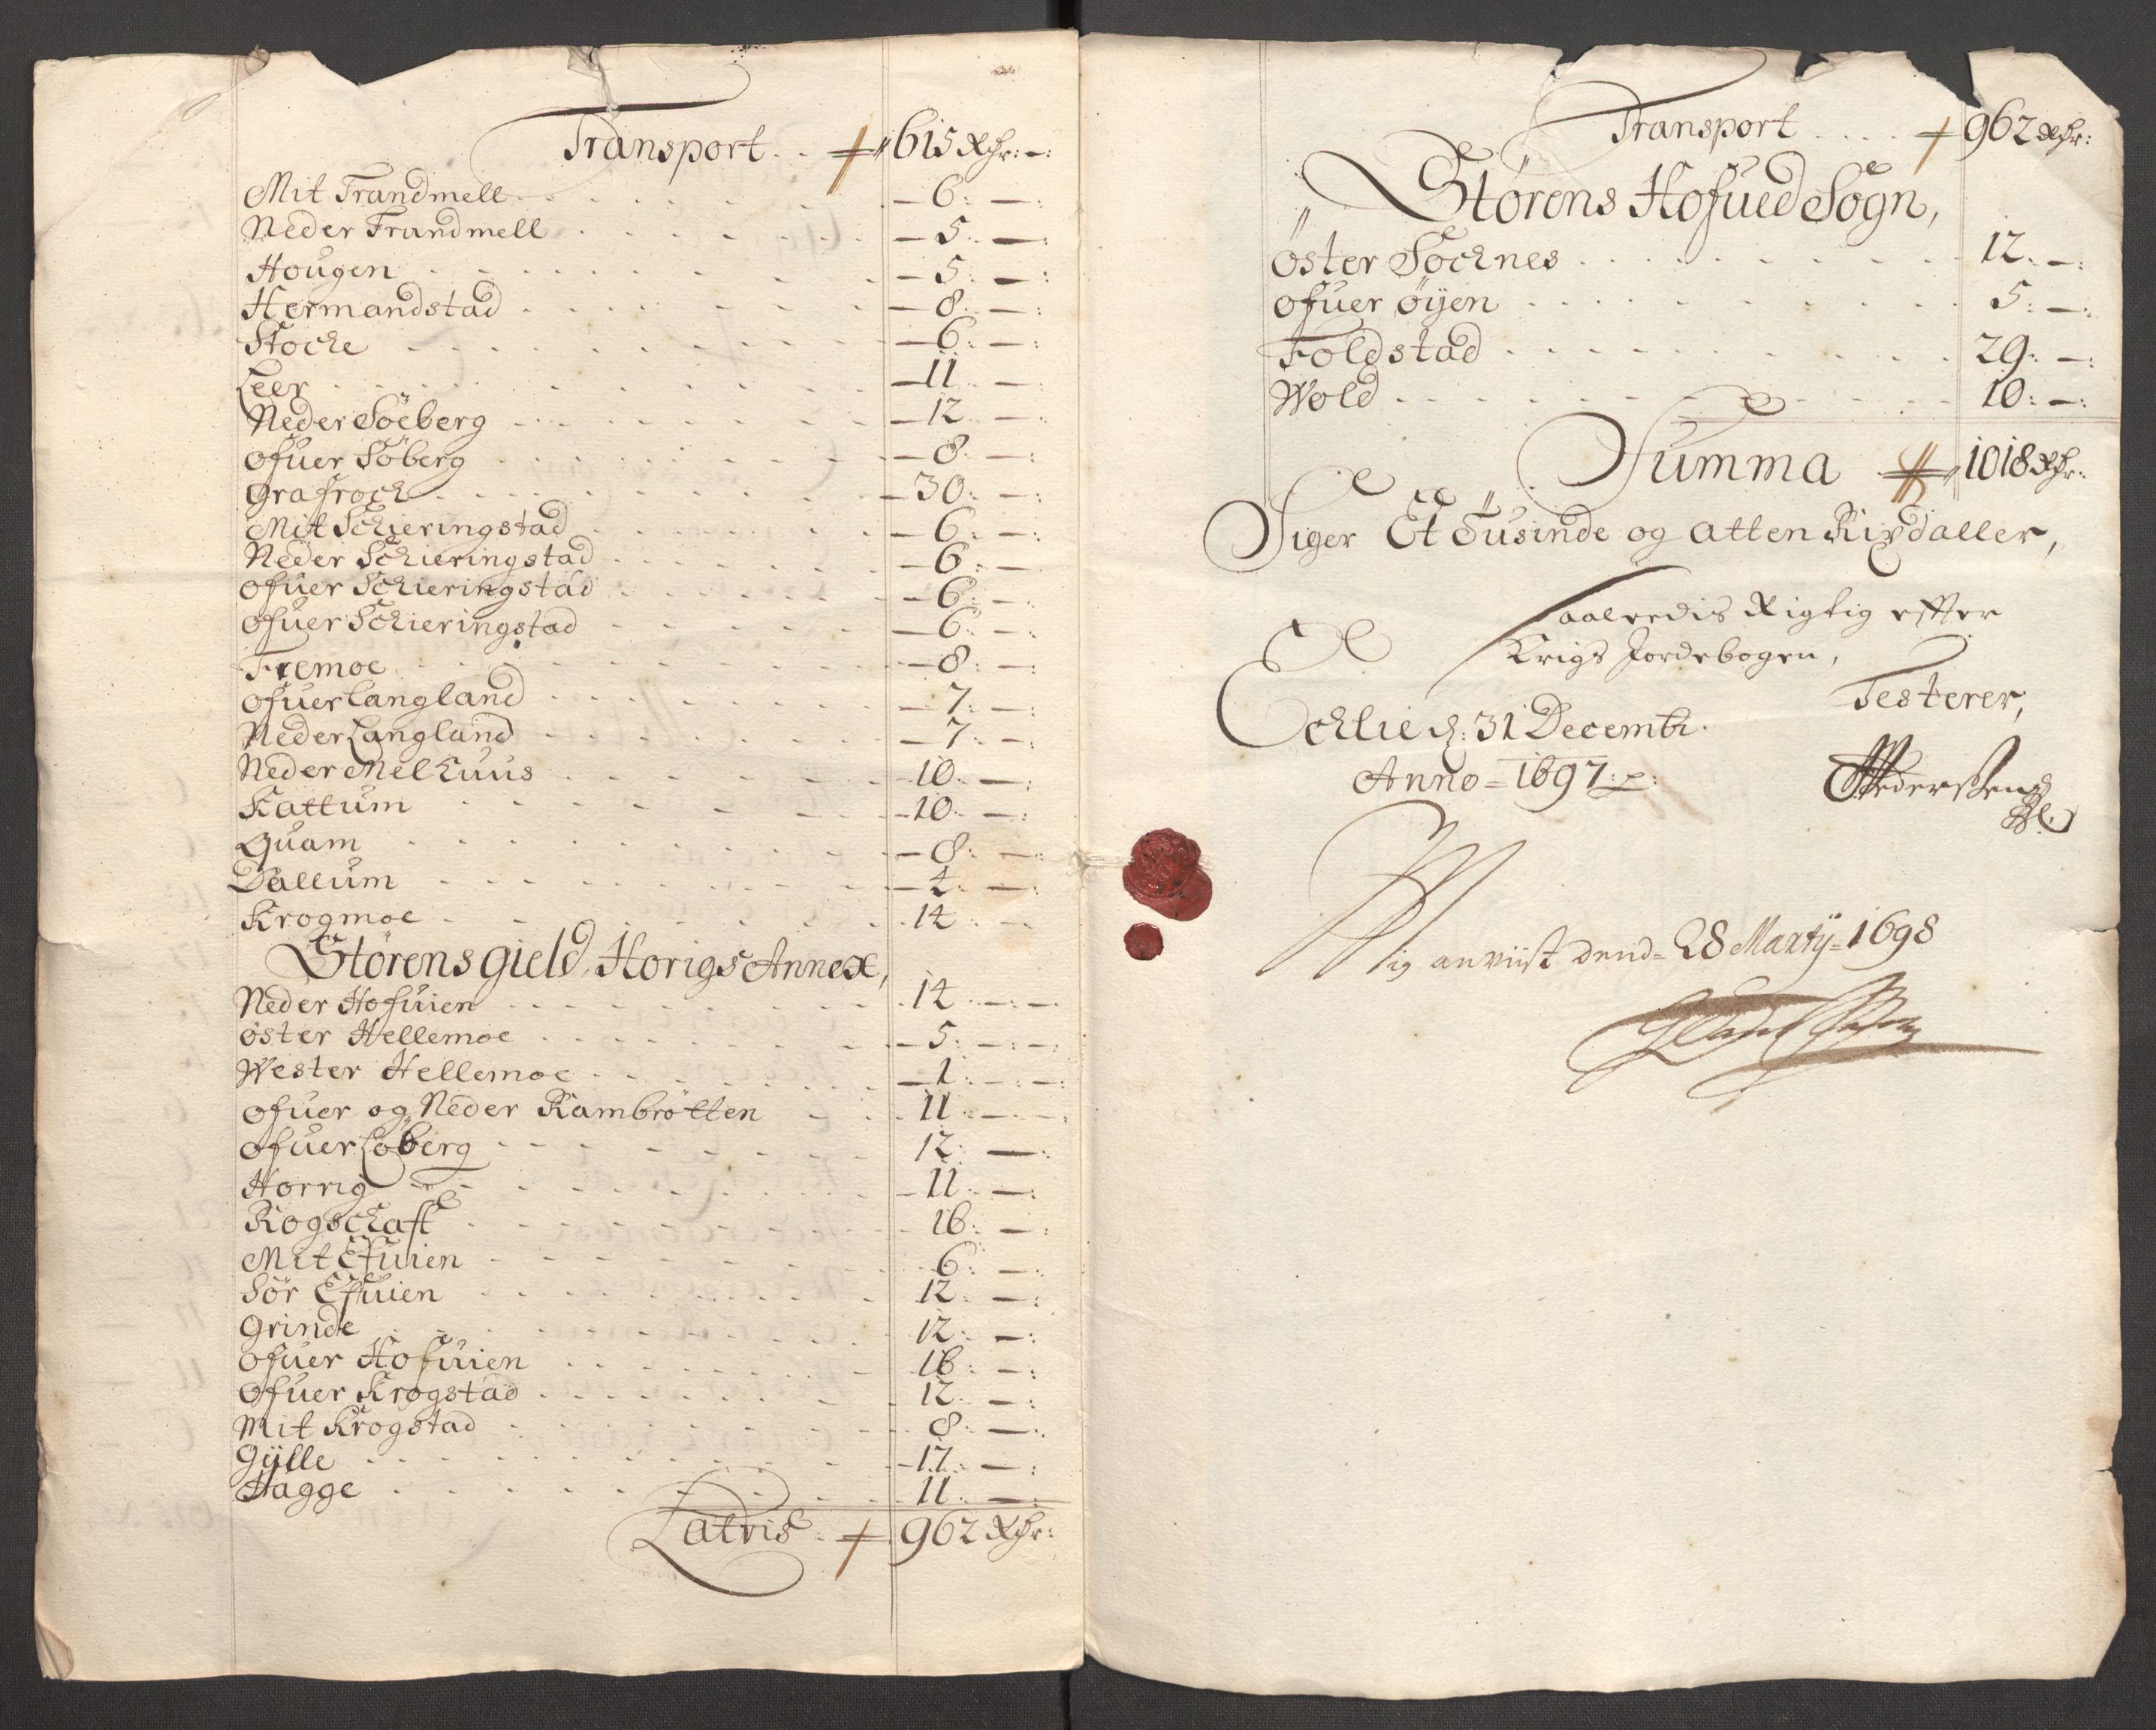 Transport 615 Rdr: -:
Mit Trandmell - 6: -:
Neder Trandmell - 5: -:
Hougen - 5: -:
Hermandstad - 8: -:
Stoche - 6: -:
Leer - 11 -:
Neder Söeberg - 12 -:
Ofuer Söberg - 8: -:
Grafroch - 30: -:
Mit Schieringstad - 6: -:
Neder Schieringstad - 6: -
Ofuer Schieringstad - 6: -
Ofuer Schieringstad - 6: -:
Fremoe - 8: -:
Ofuer Langland - 7: -:
Neder Langland - 7: -:
Neder Melhuus - 10: -:
Kattum - 10: -:
Quam - 8: -:
Dallum - 4: -:
Krogmoe 14: -
Störens gield, Horigs Annex,
Neder Hofuien 14: -
öster Hellemoe - 5: -
Wester Hellemoe - 1: -
ofuer og Neder Rambrötten 11: -
ofuer Löberg 12: -:
Horrig - 11: -:
Rogschaft 16: -:
Mit Efuien 6: -:
Sör Efuien 12: -:
Grinde 12: -:
Ofuer Hofuien 16: -:
Ofuer Krogstad 12: -:
Mit Krogstad 8: -:
Gÿlle - 17: -:
Hagge 11: -:
Latris 962 Rdr:
Transport 962 Rdr:
Störens Hofued Sogn,
öster Sochnes 12: -:
ofuer öijen 5: -:
Foldstad 29: -:
Wold 10: -:
Summa 1018 Rdr:
Siger Et Tusinde og Atten Rixdaller,
Saaledis Rigtig efter
Krigs Jordebogen,
Testerer,
Echlie d: 31 Decembr.
Anno = 1697
Pedersen
Mig anviist dend = 28 Martÿ = 1698